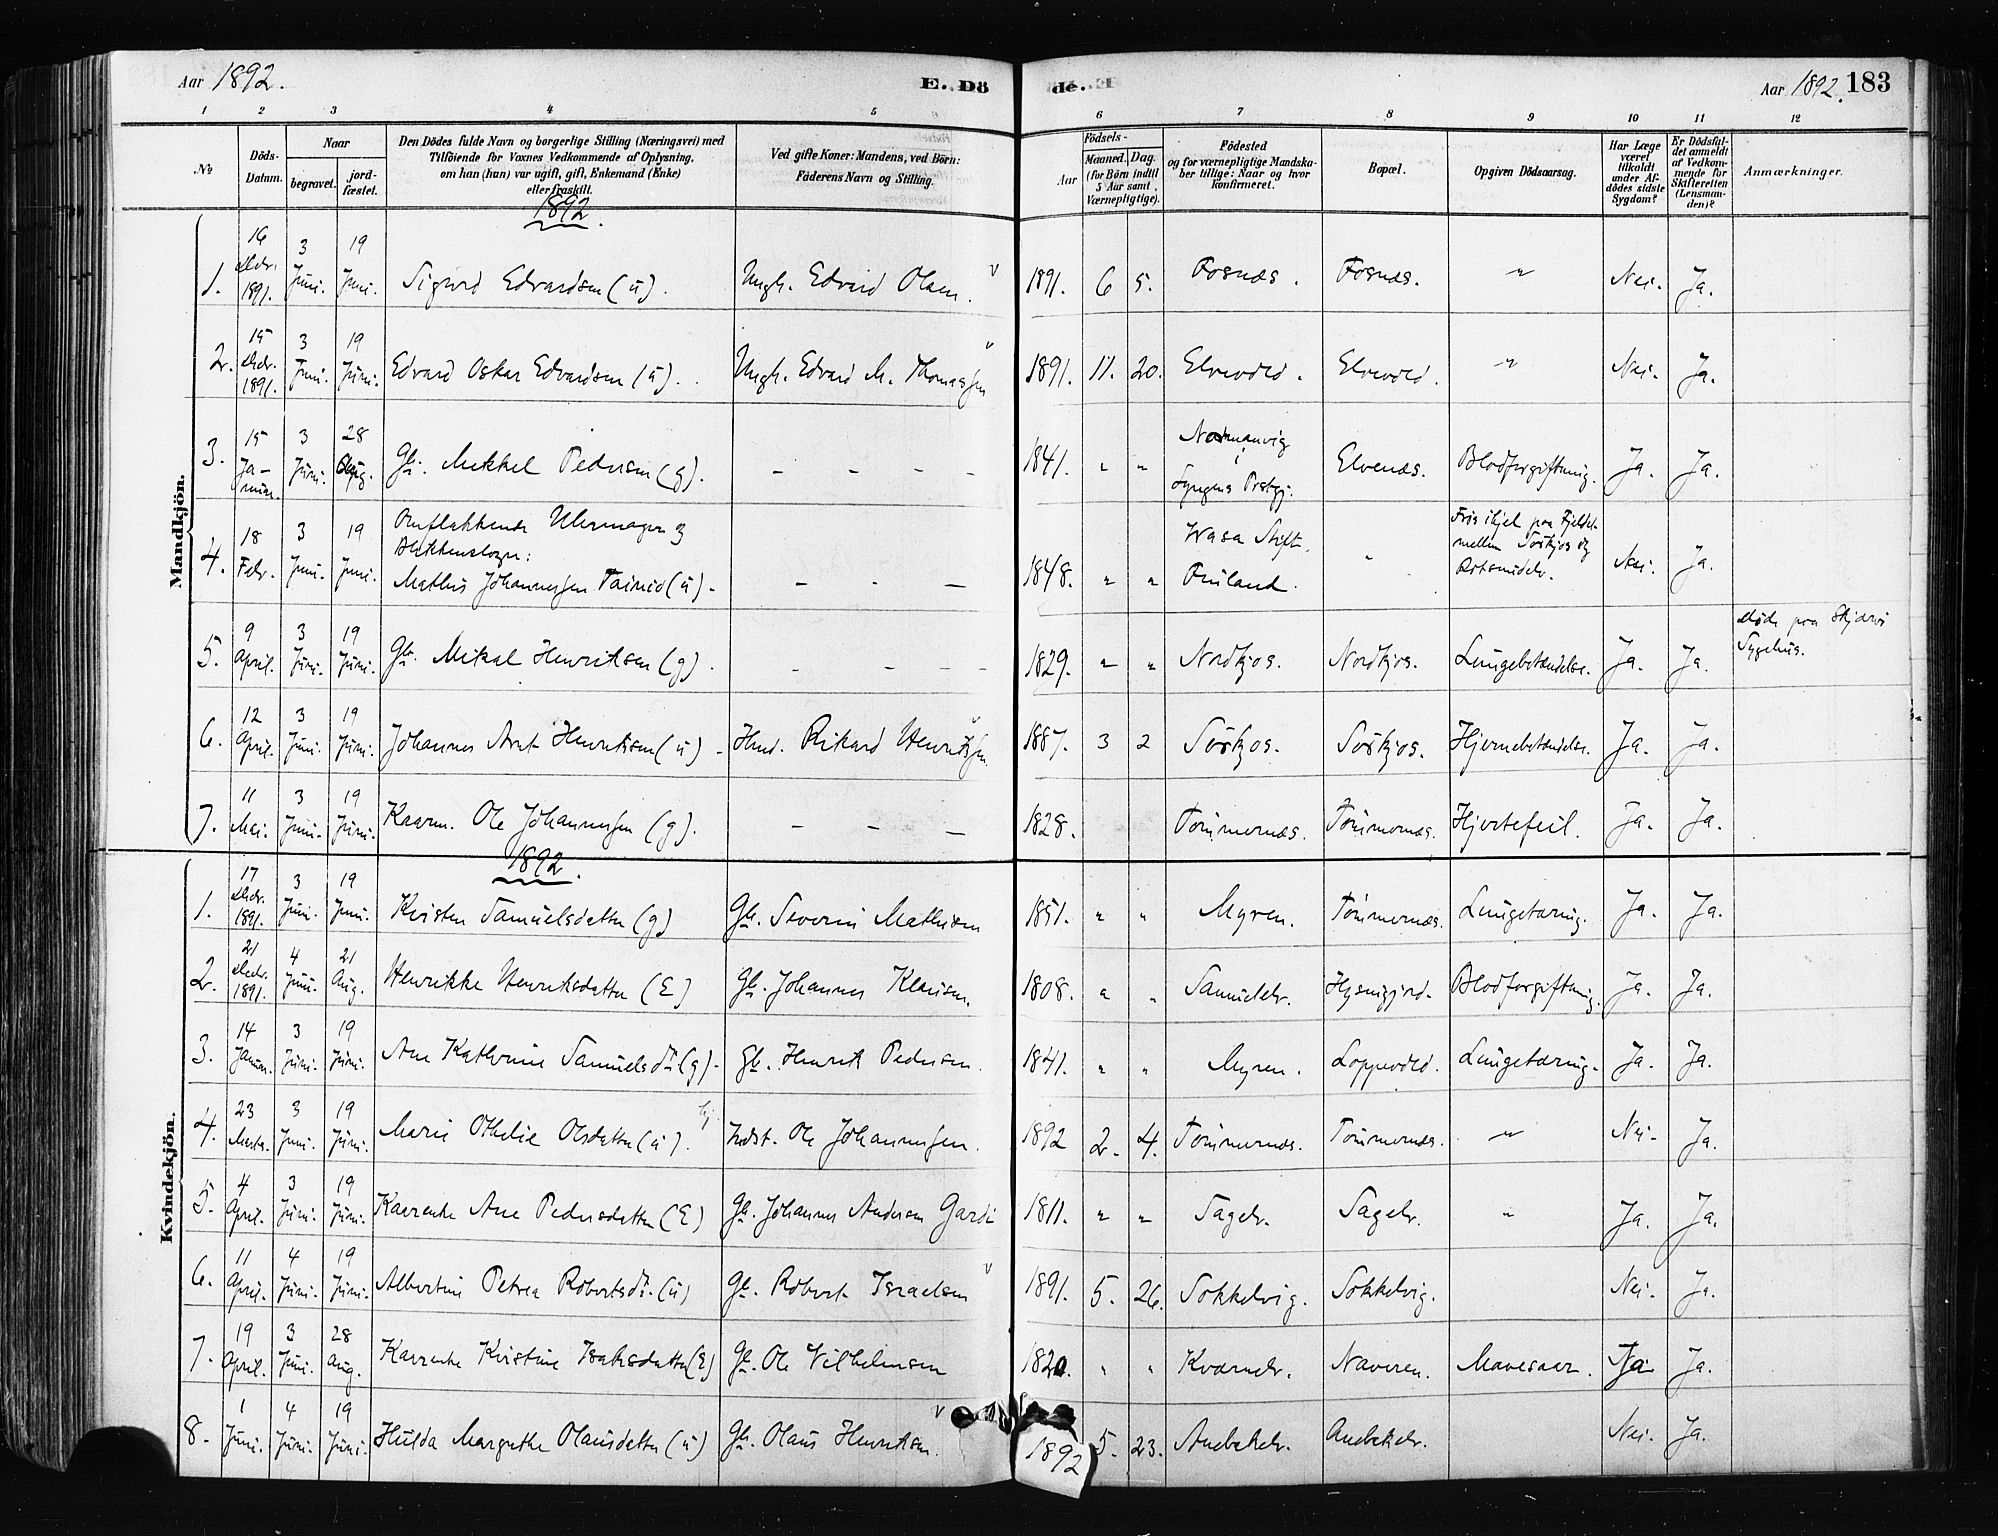 Aar 1892.
E. Dö
de.
Aar 1892. 183
1 2 3 4 5 6 7 8 9 10 11 12
No
Döds-Datum.
Naar
begravet.
jord-fæstet.
Den Dödes fulde Navn og borgerlige Stilling (Næringsvei) med
Tilföiende for Voxnes Vedkommende af Oplysning,
om han (hun) var ugift, gift, Enkemand (Enke)
eller fraskilt.
Ved gifte Koner: Mandens, ved Börn:
Faderens Navn og Stilling.
Födsels-
Aar
Maaned. Dag.
(for Börn indtil
5 Aar samt
Værnepligtige).
Födested
og for værnepligtige Mandska-
ber tillige: Naar og hvor
konfirmeret.
Bopæl.
Opgiven Dödsaarsag.
Har Læge
været
tilkaldt
under Af-
dödes sidste
Sygdom?
Er Dödsfal-
det anmeldt
af Vedkom-
mende for
Skifteretten
(Lensman-
den)?
Anmærkninger.
Mandkjön.
1892.
1. 16 Decbr. 1891. 3 Juni. 19 Juni. Sigurd Edvardsen (u). Ungk. Edvard Olsen. 1891. 6 5. Fosnæs. Fosnæs. " Nei. Ja.
2. 15 Decbr. 1891. 3 Juni. 19 Juni. Edvard Oskar Edvardsen (u). Ungk. Edvard M. Thomassen 1891. 11. 20. Elvevold. Elvevold. " Nei. Ja.
3. 15 Januar. 3 Juni. 28 Aug. Gbr. Mikkel Pedersen (g). - - - - 1841. " " Normanvig i Lyngens Prstgj. Elvenæs. Blodforgiftning. Ja. Ja.
4. 18 Febr. 3 Juni. 19 Juni. Omflakkende Uhrmager og
Blikkenslager:
Mathis Johannessen Tainio (u). - - - 1848. " " Wasa Stift. Finland. " Frös ihjel paa Fjeldet mellem Sörkjos og Rotsundelv. Nei. Ja.
5. 9 April. 3 Juni. 19 Juni. Gbr. Mikal Henriksen (g). - - - - 1829. " " Nordkjos. Nordkjos. Lungebetændelse. Ja. Ja. Döde paa Skjærvö Sygehus.
6. 12 April. 3 Juni. 19 Juni. Johannes Arnt Henriksen (u). Hmd. Rikard Henriksen 1887. 3 2 Sörkjos. Sörkjos. Hjernebetændelse. Ja. Ja.
7. 11 Mai. 3 Juni. 19 Juni. Kaarm. Ole Johannessen (g). - - - 1828. Tömmernæs. Tömmernæs. Hjertefeil. Ja. Ja.
Kvindekjön.
1892.
1. 17 Decbr. 1891. 3 Juni. 19 Juni. Kristen Samuelsdatter (g) Gbr. Severin Mathisen 1851. " " Myren. Tömmernæs. Lungetæring. Ja. Ja.
2. 21 Decbr. 1891. 4 Juni. 21 Aug. Henrikke Henriksdatter (E) Gbr. Johannes Klausen. 1808. " " Samuelelv. Blodforgiftning. Ja. Ja.
3. 14 Januar. 3 Juni. 19 Juni. Ane Kathrine Samuelsdt. (g). Gbr. Henrik Pedersen. 1841. " " Myren. Loppevold. Lungetæring. Ja. Ja.
4. 23 Marts. 3 Juni. 19 Juni. Marie Othilie Olsdatter (u). Indst. Ole Johannessen. 1892 2. 4. Tömmernæs. Tömmernæs. " Nei. Ja.
5. 4 April. 3 Juni. 19 Juni. Kaarenke Ane Pedersdatter (E) Gbr. Johannes Andersen Gardi 1811. " " Sagelv. Sagelv. " Ja. Ja.
6. 11 April. 4 Juni. 19 Juni. Albertine Petrea Robertsdt. (u) Gbr. Robert Israelsen 1891. 5. 26. Sokkelvig. Sokkelvig. Nei. Ja.
7. 19 April. 3 Juni. 28 Aug. Kaarenke Kristine Isaksdatter (E) Gbr. Ole Vilhelmsen 1820. " " Kvænelv. Naveren. Mavesaar. Ja Ja.
8. 1 Juni. 4 Juni. 19 Juni. Hulda Margrethe Olausdatter (u) Gbr. Olaus Henriksen. 1892 5. 23. Andbakelv. Andbakelv. Nei. Ja.